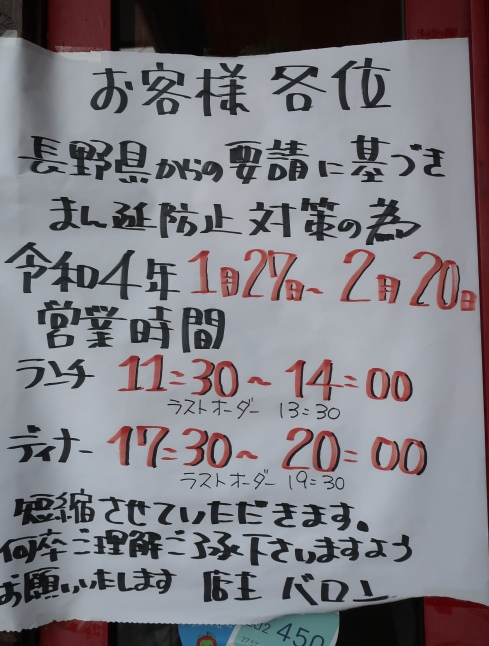 お客様 各位
長野県からの要請に基づき
まん延防止対策の為
令和4年 1月27日~2月20日
営業時間
ランチ 11:30~14:00
ラストオーダー 13:30
ディナー 17:30~20:00
ラストオーダー 19:30
短縮させていただきます。
何卒ご理解ご了承下さいますよう
お願いいたします 店主 バロー
450